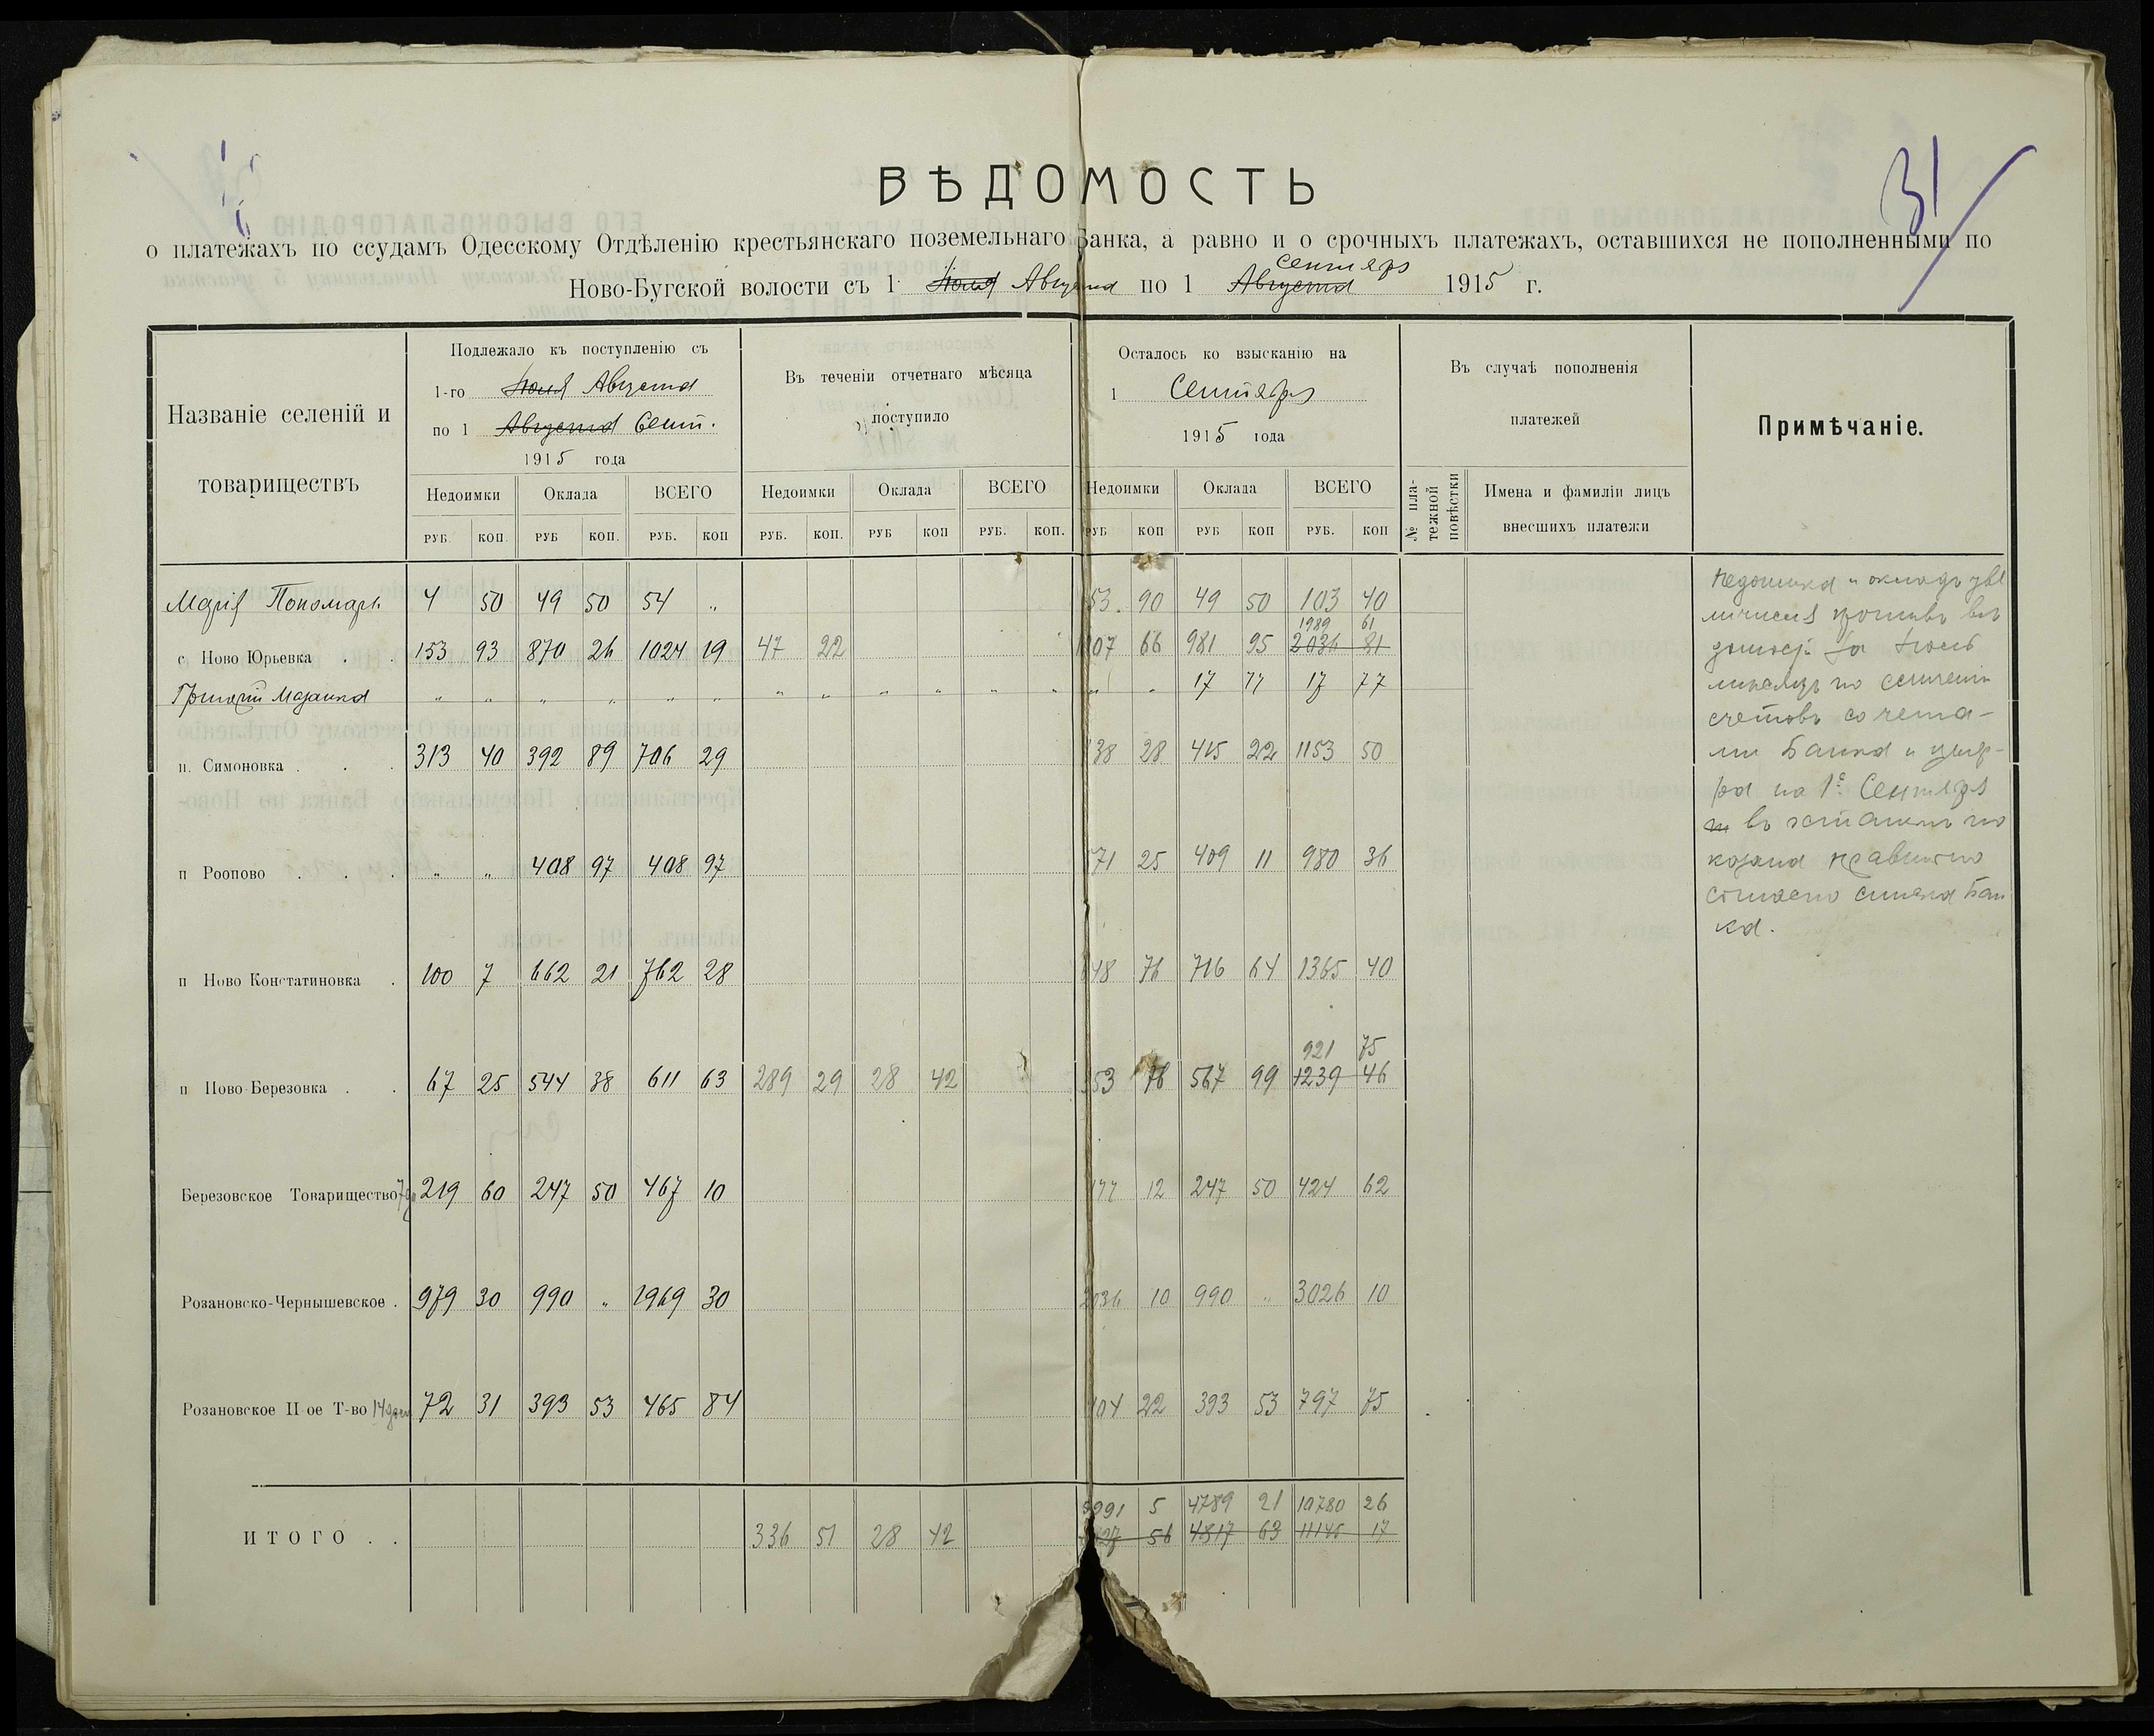 31
ВѢДОМОСТЬ
о платежахъ по ссудамъ Одесскому Отдѣленію крестьянскаго поземельнаго Банка, а равно и о срочныхъ платежахъ, оставшихся не пополненными по
Сентября
Ново-Бугской волости съ 1 Іюля Августа по 1 Августа 1915 г.
Названіе селеній и товариществъ
Подлежало къ поступленію съ
1-го Іюля Августа
по 1 Августа Сент.
1915 года
Въ теченіи отчетнаго мѣсяца
поступило
Осталось ко взысканію на
1 Сентября
1915 года
Въ случаѣ пополненія
платежей
Примѣчаніе.
Недоимки Оклада ВСЕГО Недоимки Оклада ВСЕГО Недоимки Оклада ВСЕГО
№ пла-
тежной
повѣстки
Имена и фамиліи лицъ
внесшихъ платежи
РУБ. КОП. РУБ КОП. РУБ. КОП РУБ. КОП. РУБ КОП РУБ. КОП. РУБ КОП РУБ КОП РУБ. КОП
Марія Пономарь 4 50 49 50 54 „ 53 90 49 50 103 40
1989 61
с. Ново Юрьевка . . 153 93 870 26 1024 19 47 22 1007 66 981 95 2036 81
Григорій Мазанка „ „ „ „ „ „ „ „ „ „ „ „ „ „ 17 77 17 77
п. Симоновка . . . 313 40 392 89 706 29 738 28 415 22 1153 50
п Роопово . . . „ „ 408 97 408 97 571 25 409 11 980 36
п Ново Констатиновка . 100 7 662 21 762 28 648 76 716 64 1365 40
921 75
п Ново-Березовка . . 67 25 544 38 611 63 289 29 28 42 353 76 567 99 1239 46
Березовское Товарищество 219 60 247 50 467 10 177 12 247 50 424 62
Розановско-Чернышевское . 979 30 990 „ 1969 30 2036 10 990 „ 3026 10
Розановское II ое Т-во 72 31 393 53 465 84 404 22 393 53 797 75
5991 5 4789 21 10780 26
ИТОГО . . 336 51 28 42 56 4817 63 11145 17
Недоимка и окладъ уве
личился противъ вѣ
домос. за Іюль
счетовъ со чета-
ми Банка и циф-
ра на 1е Сентября
въ остаткѣ по
казана правильно
согласно списка Бан
ка.